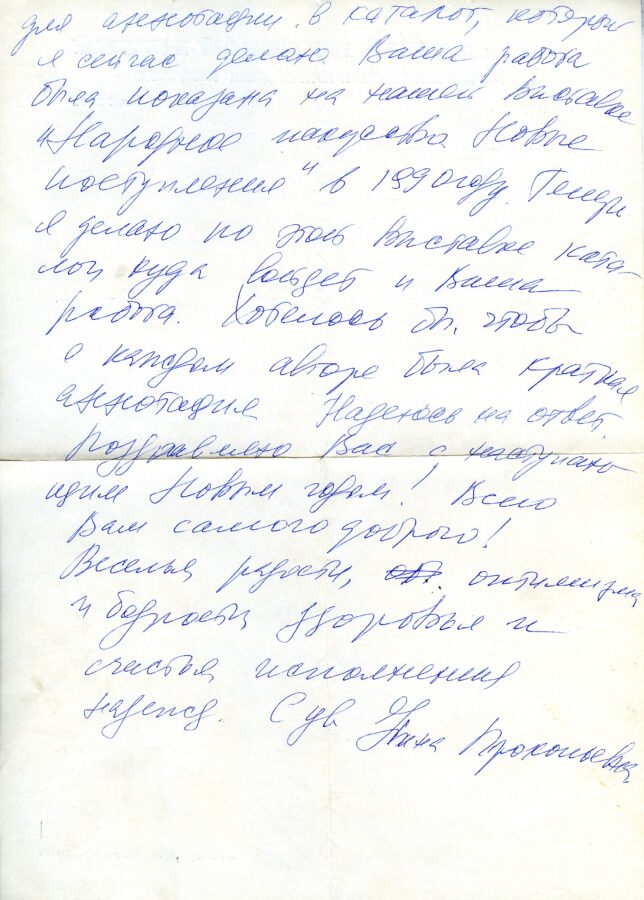 для аннотации в каталог, который
я сейчас делаю Ваша работа
была показана на нашей выставке
"Народное искусство Новые
поступления" в 1990 году. Теперь
я делаю по этой выставке ката-
лог куда войдет и Ваша
работа. Хотелось бы, чтобы
о каждом авторе была краткая
аннотация Надеюсь на ответ
Поздравляю Вас с наступаю-
щим Новым годом! Всего
Вам самого доброго!
Веселья радости, оптимизма
и бодрости здоровья и
счастья исполнения
надежд. С ув Нина Прокопьевна